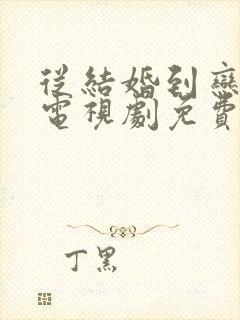 從結婚到戀
電視劇免費
丁黑